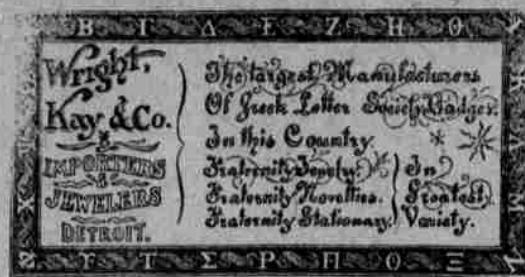 B Γ Δ E Z H Θ
Wright,
Kay & Co.
IMPORTERS
&
JEWELERS
DETROIT.
The Largest Manufacturers
Of Greek Letter Society Badges.
In this Country.
Fraternity Jewelry.
Fraternity Novelties.
Fraternity Stationary.
In
Greatest
Variety.
Σ Ρ Π Ο Ξ